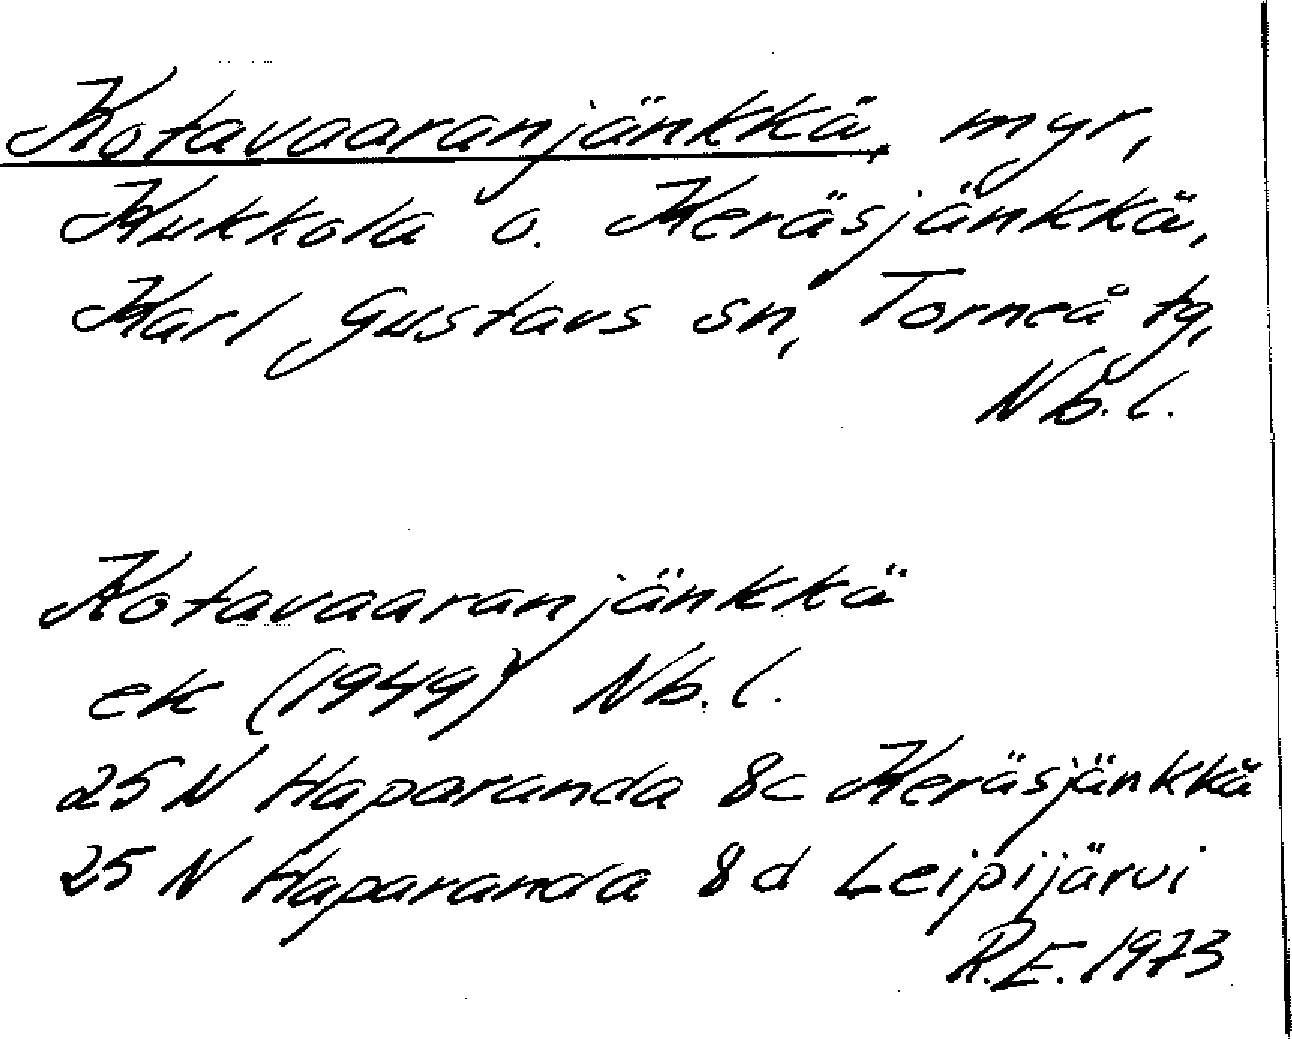 Kotavaaranjänkkä, myr,
Kukkola o. Keräsjänkkä,
Karl Gustavs sn, Torneå tg,
Nb. l.
Kotavaaranjänkkä
ek (1949) Nb. l.
25 N Haparanda 8c Keräsjänkkä
25 N Haparanda 8d Leipijärvi
R.E. 1973